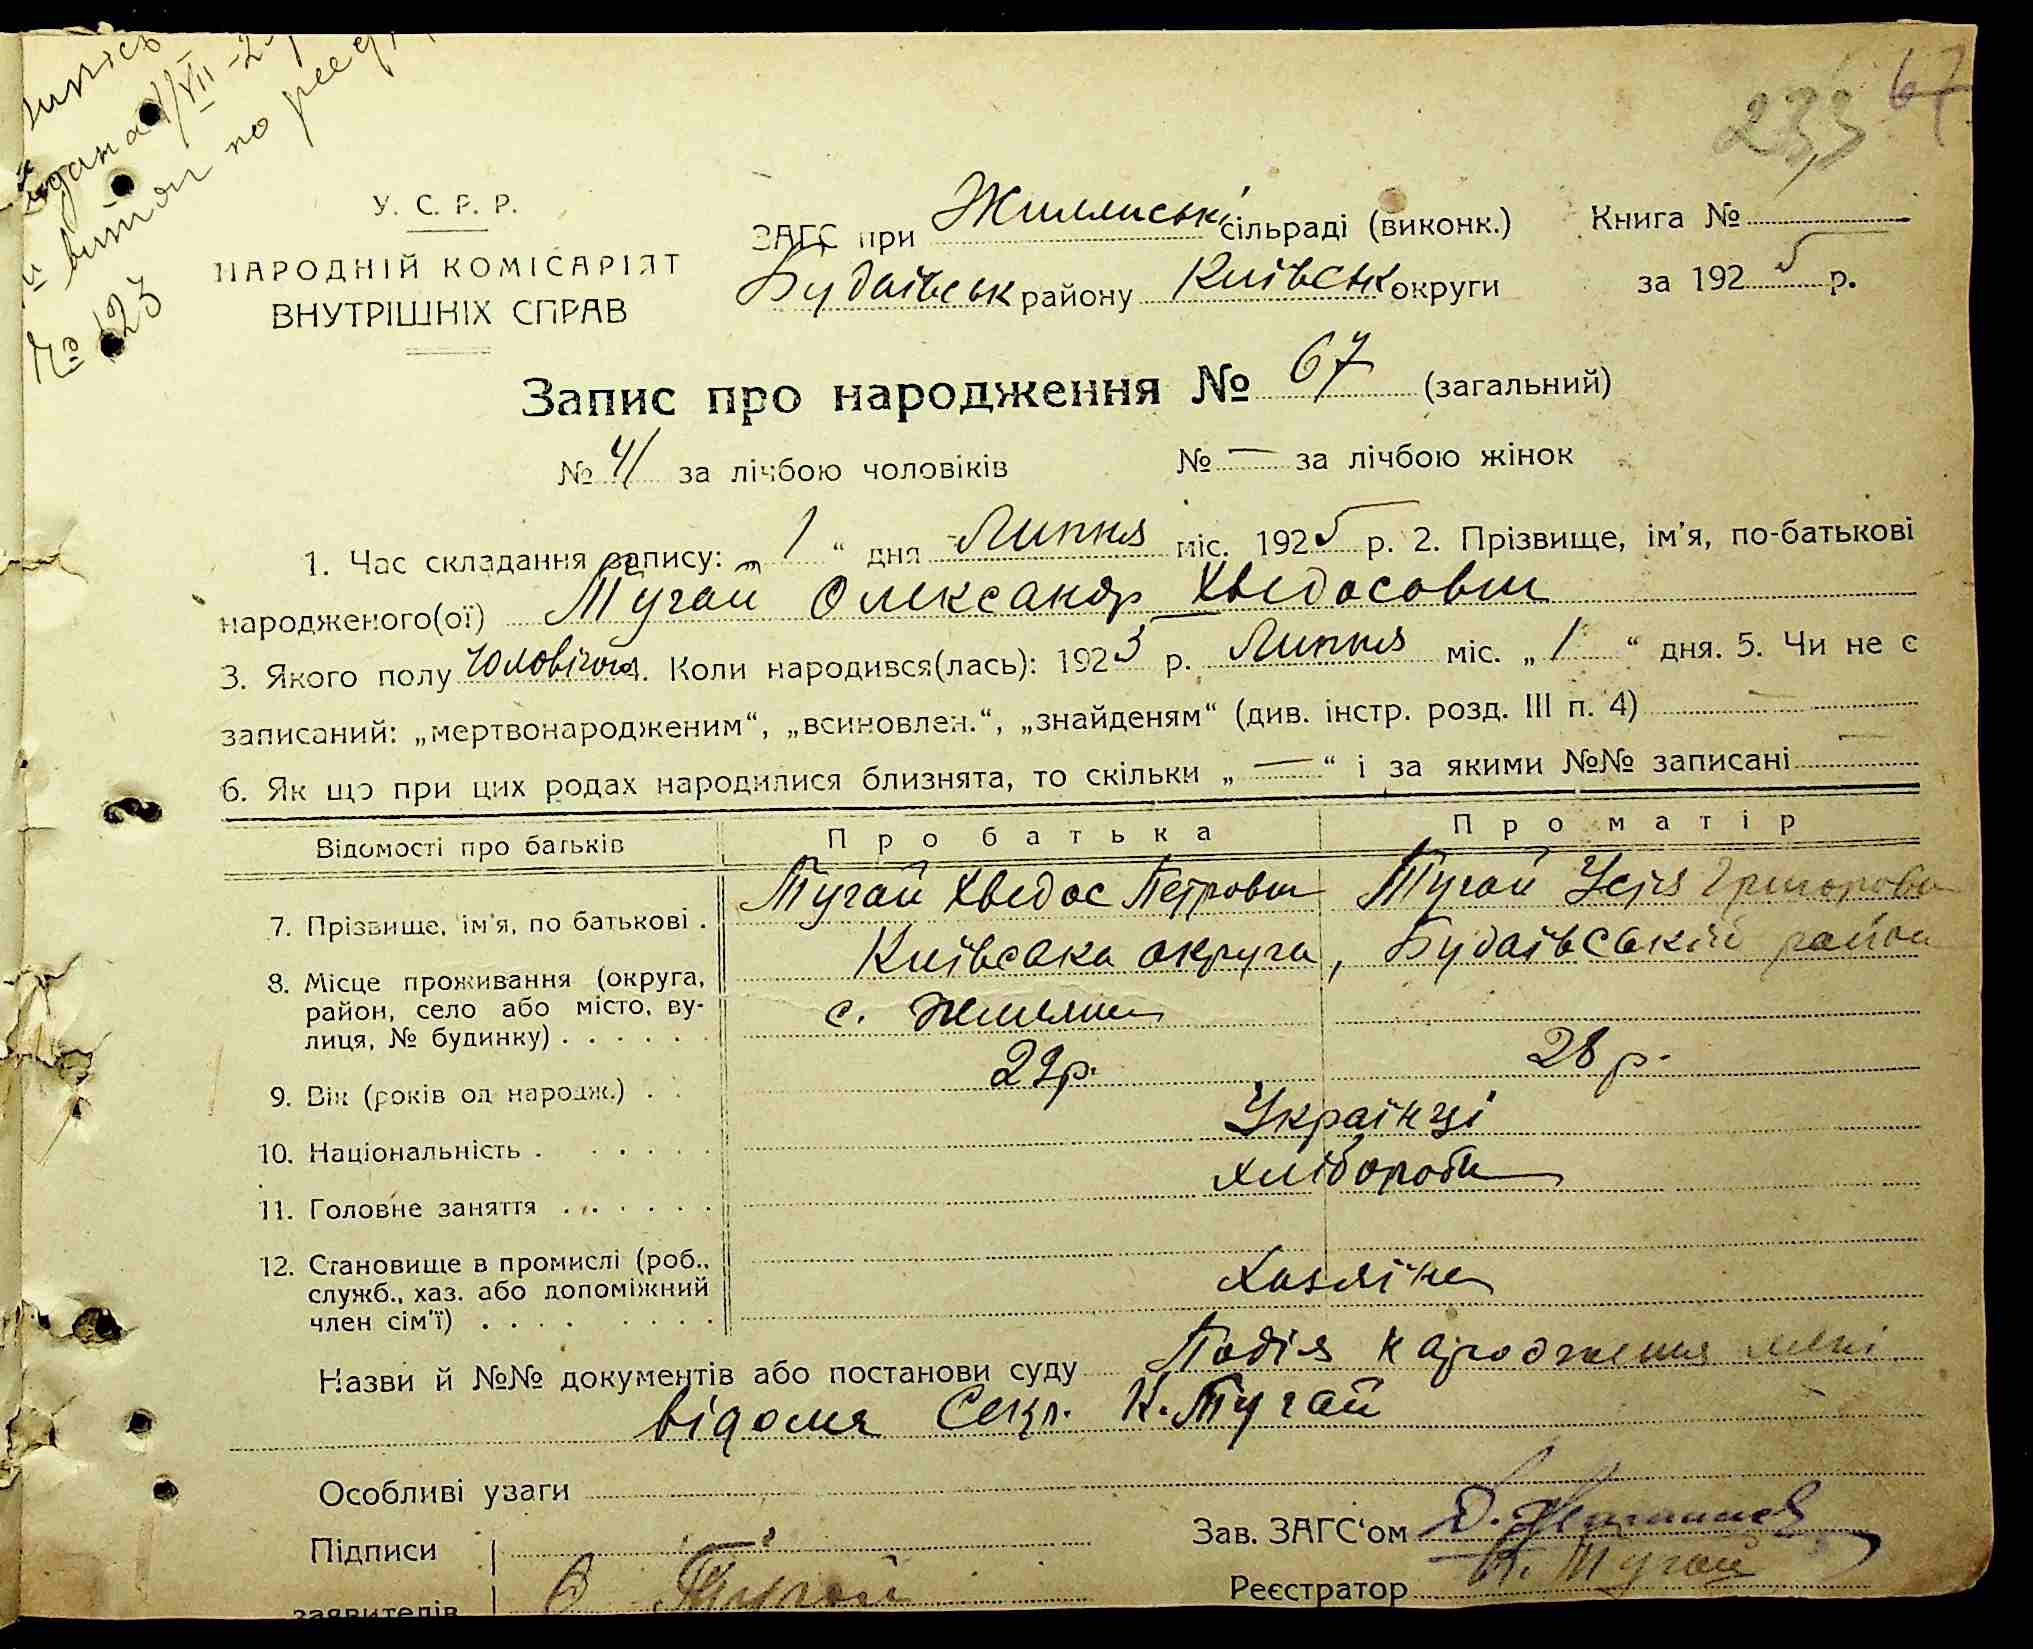 видана 1/VII-25
витяг по реєстр
№ 123
233 67
У. С. Р. Р.
НАРОДНІЙ КОМІСАРІЯТ
ВНУТРІШНІХ СПРАВ
ЗАГС при Жиллянськ сільраді (виконк.) Книга №
Будаївськ району Київськ округи за 1925 р.
Запис про народження № 67 (загальний)
№ 41 за лічбою чоловіків № — за лічбою жінок
1. Час складання запису: „ 1 “ дня Липня міс. 1925 р. 2. Прізвище, ім'я, по-батькові
народженого(ої) Тугай Олександр Хведосович
3. Якого полу Чоловічого 4. Коли народився(лась): 1925 р. Липня міс. „ 1 “ дня. 5. Чи не є
записаний: „мертвонародженим“, „всиновлен.“, „знайденям“ (див. інстр. розд. III п. 4) —
6. Як що при цих родах народилися близнята, то скільки „ — “ і за якими №№ записані —
Відомості про батьків Про батька Про матір
7. Прізвище, ім'я, по батькові . Тугай Хведос Петрович Тугай Устя Григорова
8. Місце проживання (округа, Київська округа, Будаївський район
район, село або місто, ву- с. Жиляни
лиця, № будинку) . . . . . .
9. Вік (років од народж.) . . 29 р. 28 р.
10. Національність . . . . . . Українці
11. Головне заняття . . . . . . Хлібороби
12. Становище в промислі (роб.,
служб., хаз. або допоміжний Хазяїни
член сім'ї) . . . . . . . . .
Назви й №№ документів або постанови суду Подія народження мені
відома Секр. К. Тугай
Особливі уваги
Зав. ЗАГС‘ом
Підписи
Реєстратор К. Тугай
заявителів Тугай